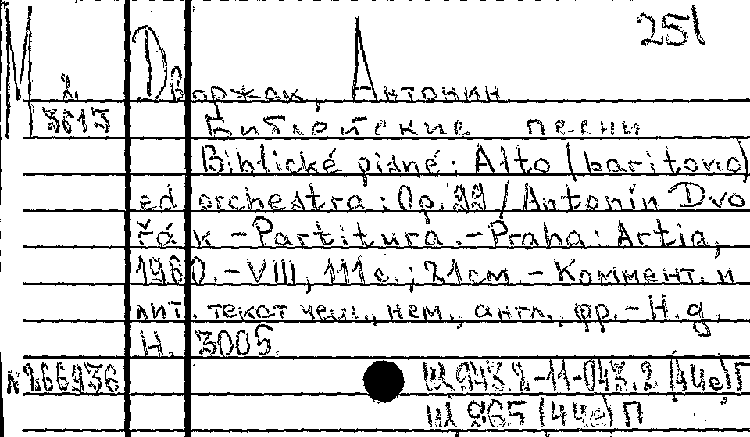 251
М 2 Дворжак, Антонин
3613 Библейские песни
Biblické pisné: Alto (baritono)
ed orchestra: Op. 99 / Antonín Dvo
řák - Partitura. - Praha: Artia,
1960. - VIII, 111 с.; 21 см. - Коммент. и
лит. текст чеш., нем., англ., фр. - Н. д.
Н. 3005.
№266936 Щ943.2-11-043.2 (4Че)П
Щ 965 (4Че) П